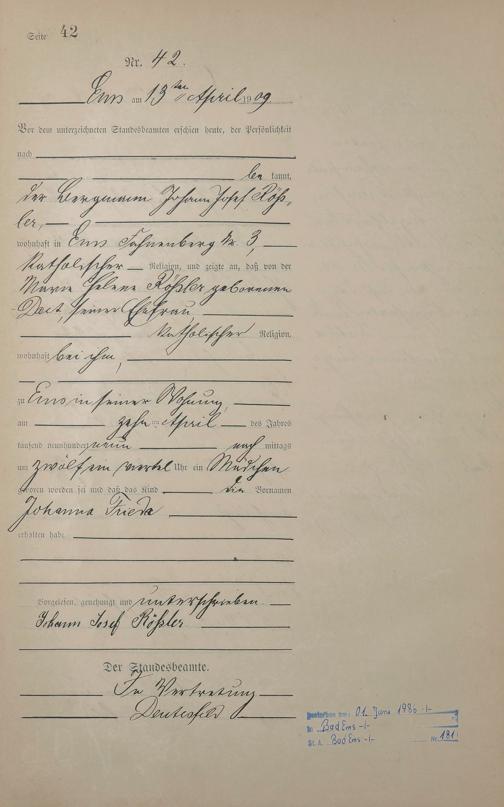 Seite 42
Nr. 42.
Ems am 13ten April 1909.
Vor dem unterzeichneten Standesbeamten erschien heute, der Persönlichkeit
nach
be kannt,
der Bergmann Johann Josef Röß-
ler,
wohnhaft in Ems Fahnenberg Nr. 3,
katholischer Religion, und zeigte an, daß von der
Marie Helene Rößler geborenen
seiner Ehefrau,
katholischer Religion,
wohnhaft bei ihm,
zu Ems in seiner Wohnung,
am zehn ten April des Jahres
tausend neunhundert neun nach mittags
um zwölf ein viertel Uhr ein Mädchen
geboren worden sei und daß das Kind die Vornamen
Johanna Frieda
erhalten habe.
Vorgelesen, genehmigt und unterschrieben
Johann Josef Rößler
Der Standesbeamte.
In Vertretung
Gestorben am: 01. Juni 1986 -/-
in Bad Ems -/-
St. A. Bad Ems -/- Nr. 181